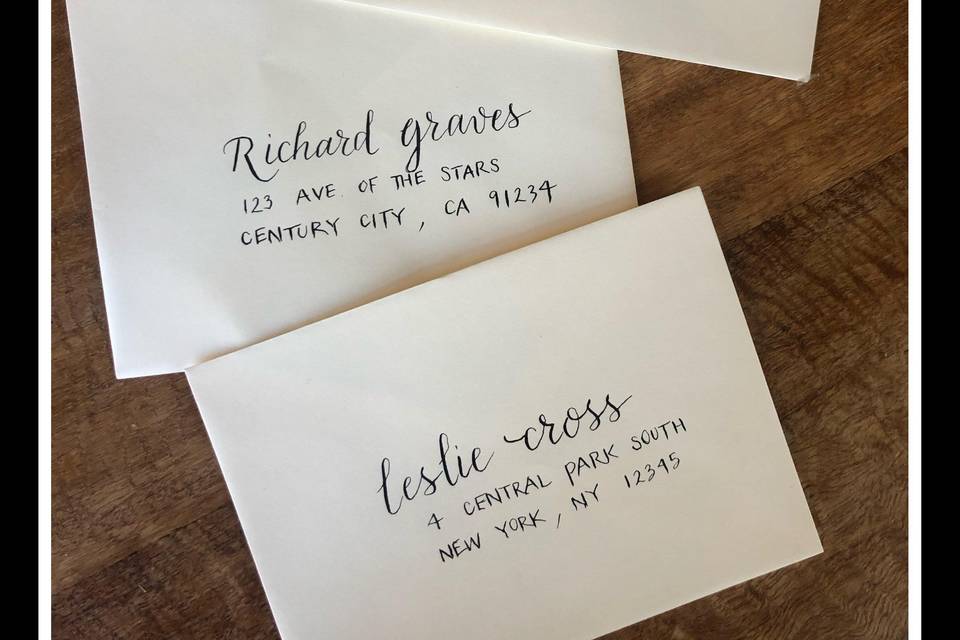 Richard graves
123 AVE. OF THE STARS
CENTURY CITY, CA 91234
leslie cross
4 CENTRAL PARK SOUTH
NEW YORK, NY 12345